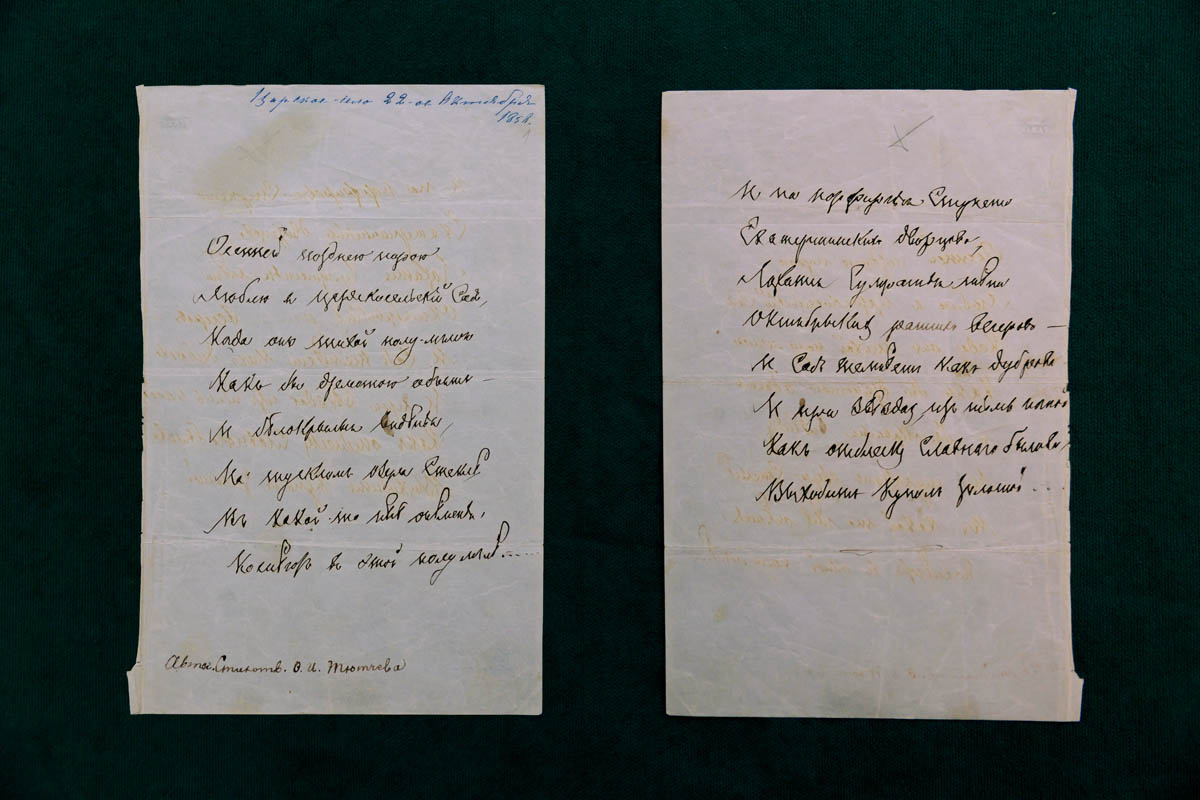 Царское-село 22-ое Октября
1858.
Осенней позднею порою
Люблю я Царскосельской Садъ,
Когда онъ тихой полу-мглою
Какъ бы дремотою объятъ –
И бѣлокрылыя Видѣнья,
На тускломъ озера Стеклѣ
Въ какой-то нѣгѣ онѣменья,
Коснѣютъ въ этой полумглѣ.....
Автог. Стихотв. Ѳ. И. Тютчева
И на порфирныя Ступени
Екатерининскихъ дворцовъ,
Ложатся Сумрачныя тѣни
Октябрьскихъ раннихъ Вечеровъ –
И Садъ темнѣетъ какъ дуброва
И при звѣздахъ изъ тьмы ночной
Какъ отблескъ Славнаго былова,
Выходитъ куполъ золотой ....